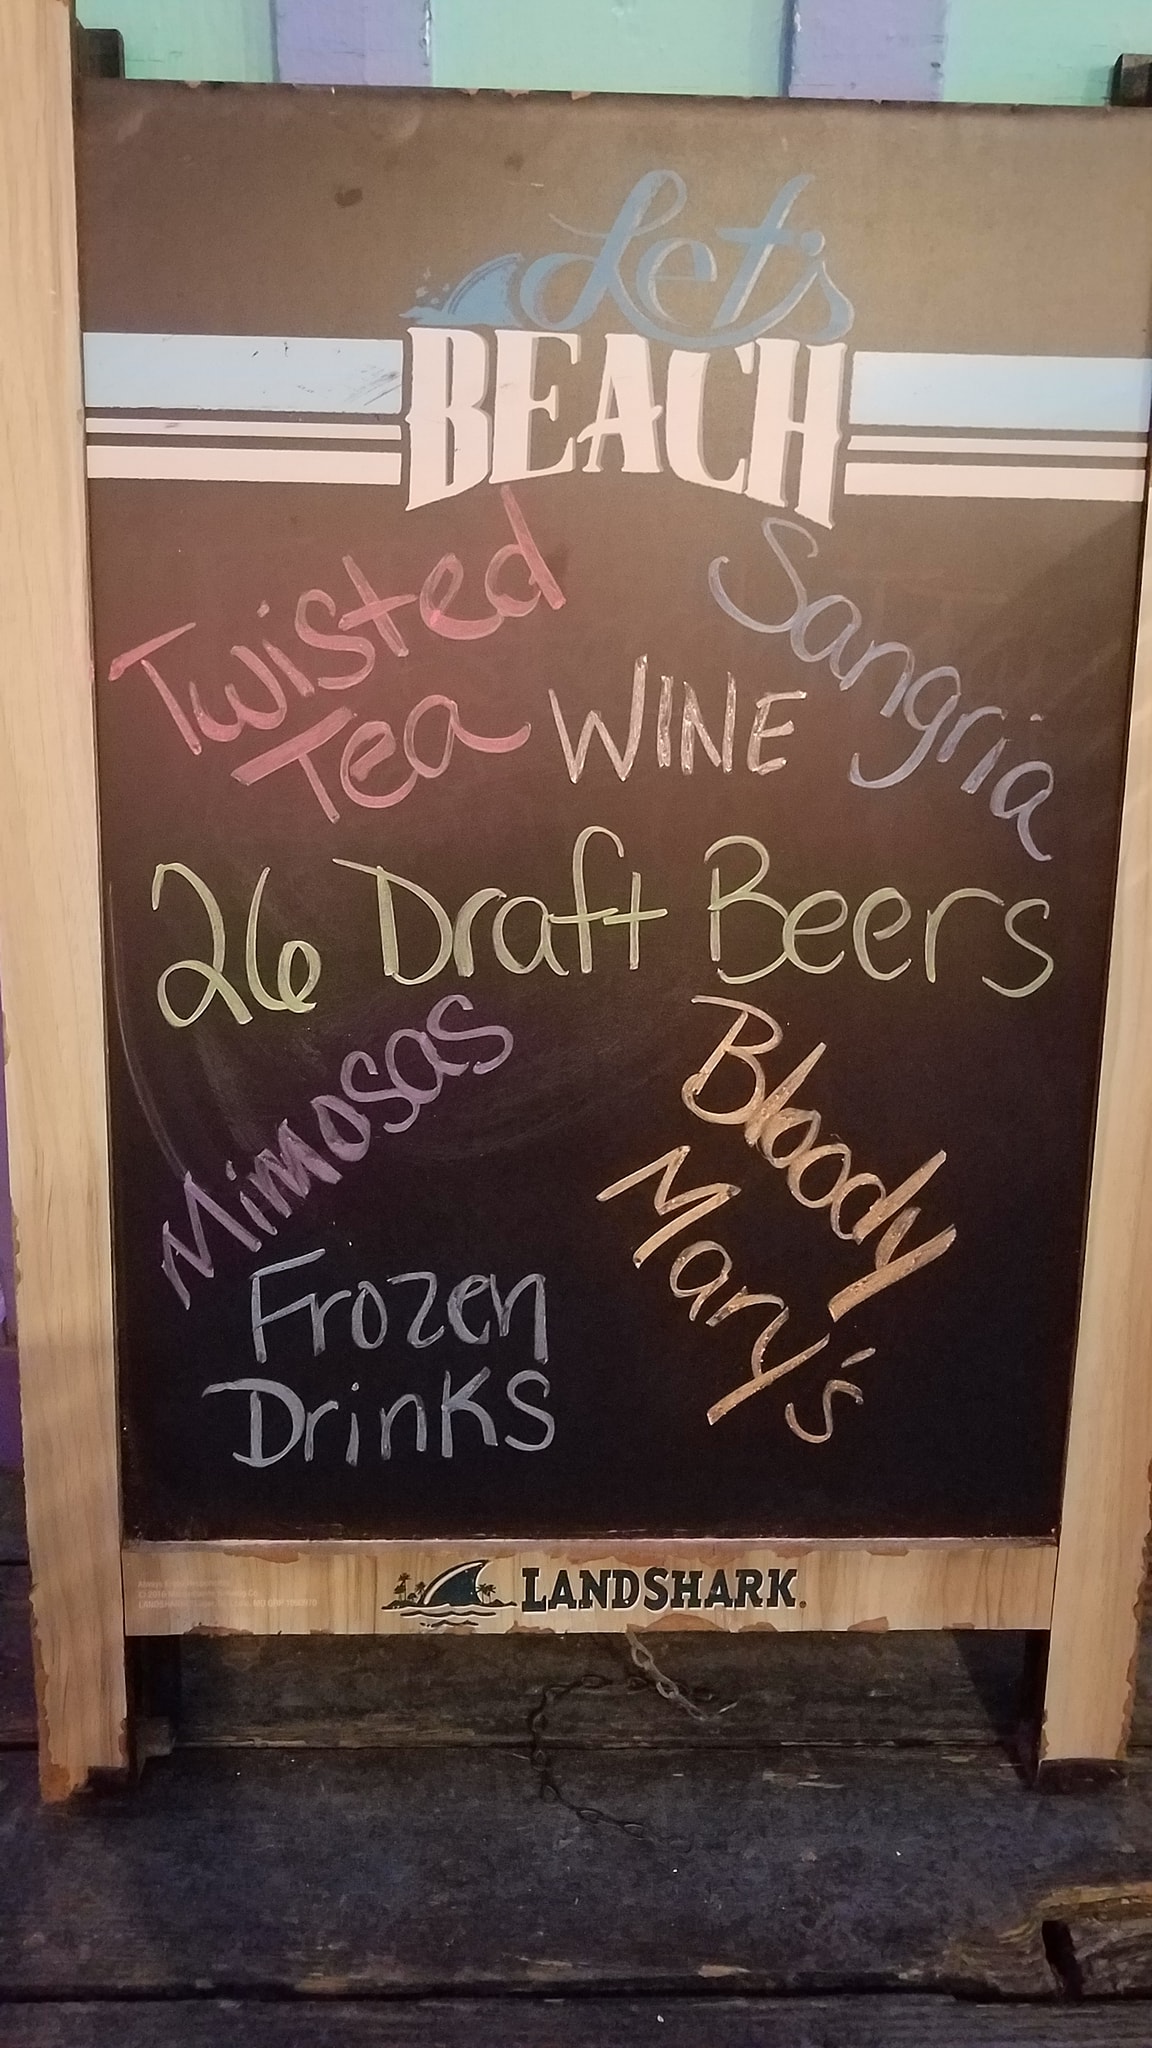 Let's
BEACH
Twisted
Tea
WINE
Sangria
26 Draft Beers
Mimosas
Bloody
Mary's
Frozen
Drinks
LANDSHARK